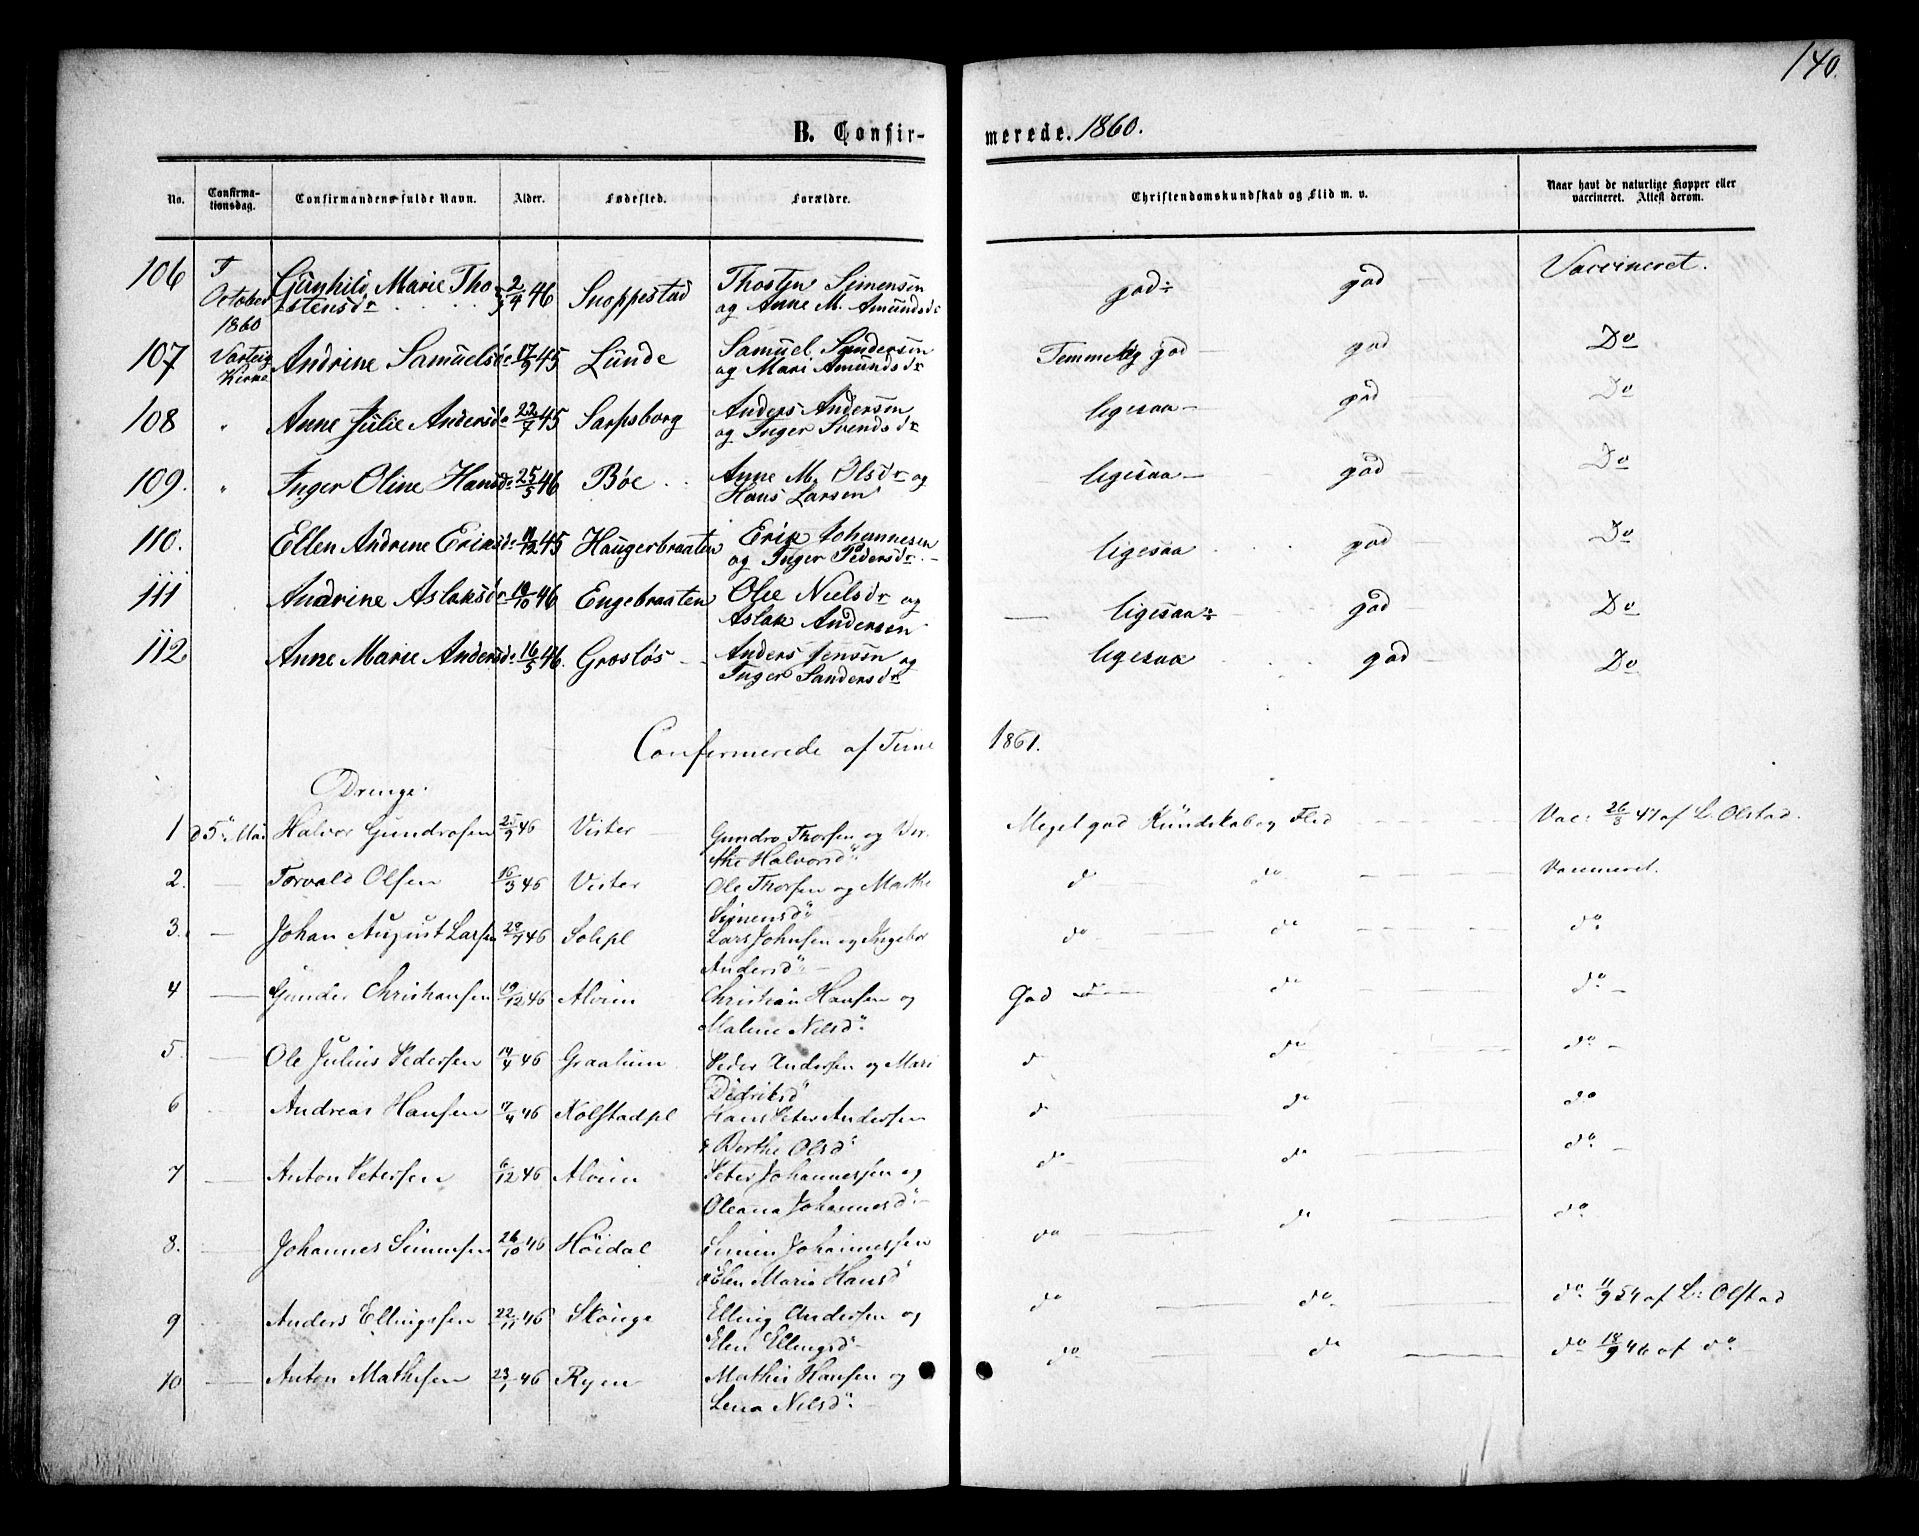 140.
B. Confir- merede. 1860.
No. Confirma-tionsdag. Confirmandens fulde Navn. Alder. Fødested. Forældre. Christendomskundskab og Flid m. v. Naar havt de naturlige Kopper eller vaccineret. Attest derom.
106 October Gunhild Marie Tho 2/4 46 Snoppestad Thosten Simensen god god Vaccineret.
1860 stensdr og Anne M. Amundsdr
107 Varteig Andrine Samuelsdr 17/9 45 Lunde Samuel Sandersen Temmelig god god Do
Kirke og Mari Amundsdr
108 " Anne Julie Andersdr 22/7 45 Sarpsborg Anders Andersen ligesaa god Do
og Inger Svendsdr
109. " Inger Oline Hansdr 25/5 46 Bøe Anne M. Olsdr og ligesaa god Do
Hans Larsen
110. Ellen Andrene Eriksdr 11/12 45 Haugerbraaten Erik Johannesen ligesaa god Do
og Inger Pedersdr
111 Andrine Aslaksdr 10/10 46 Engebraaten Olie Nielsdr og ligesaa god Do
Aslak Andersen
112 Anne Marie Andersdr 16/5 46. Grosløs Anders Jensen og ligesaa god Do
Inger Sandersdr
Confermerede af Tune 1861.
Drenge.
1 d 5te Mai Halvor Gundrosen 25/9 46 Vister Gundro Thorsen og Ber- Meget god Kundskab og Flid Vac: 26/8 47 af L. Olstad.
the Halvorsd
2. Torvald Olsen 16/3 46 Vister Ole Thorsen og Marthe do do Vaccineret.
Simensd
3. Johan August Larsen 46 Solipl Lars Johnsen og Ingebor do do do
Andersd
4 Gunder Christiansen 19/12 46 Alvim Christian Hansen og God do do
Malene Nilsd
5. Ole Julius Pedersen 14/4 46 Graalum Peder Andersen og Mari do do do
Didriksd
6 Andreas Hansen 17/4 46 Kolstadpl Hans Peter Andersen do do do
& Berthe Olsd
7 Anton Petersen 6/12 46 Alvim Peter Johannessen og do do do
Oleana Johannesd
8. Johannes Simensen 26/10 46 Höidal Simen Johannessen do do do
& Elen Marie Hansd
9 Anders Ellingsen 22/11 46 Skonge Elling Andersen og do do do 11/9 54 af L: Olstad
Elen Ellingsd
10 Anton Mathisen 23/1 46 Ryen Mathis Hansen og do do do 18/9 46 af do
Lena Nilsd